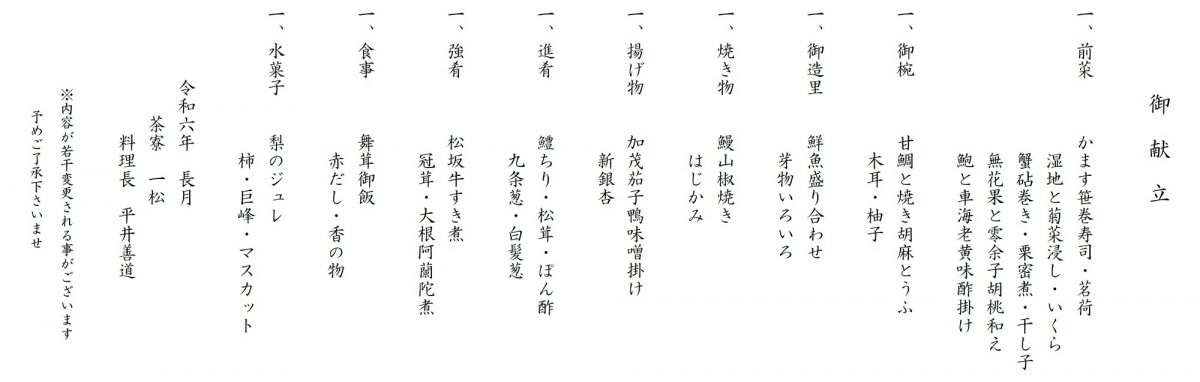 御献立
一、前菜　かます笹巻寿司・茗荷
湿地と菊菜浸し・いくら
蟹砧巻き・栗密煮・干し子
無花果と零余子胡桃和え
鮑と車海老黄味酢掛け
一、御椀　甘鯛と焼き胡麻とうふ
木耳・柚子
一、御造里　鮮魚盛り合わせ
芽物いろいろ
一、焼き物　鰻山椒焼き
はじかみ
一、揚げ物　加茂茄子鴨味噌掛け
新銀杏
一、進肴　鱧ちり・松茸・ぽん酢
九条葱・白髪葱
一、強肴　松坂牛すき煮
冠茸・大根阿蘭陀煮
一、食事　舞茸御飯
赤だし・香の物
一、水菓子　梨のジュレ
柿・巨峰・マスカット
令和六年　長月
茶寮　一松
料理長　平井善道
※内容が若干変更される事がございます
予めご了承下さいませ